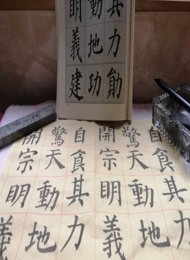 其力勛
動地功
明義建
自食其力
驚天動地
開宗明義
自食其力
驚天動地
開宗明義